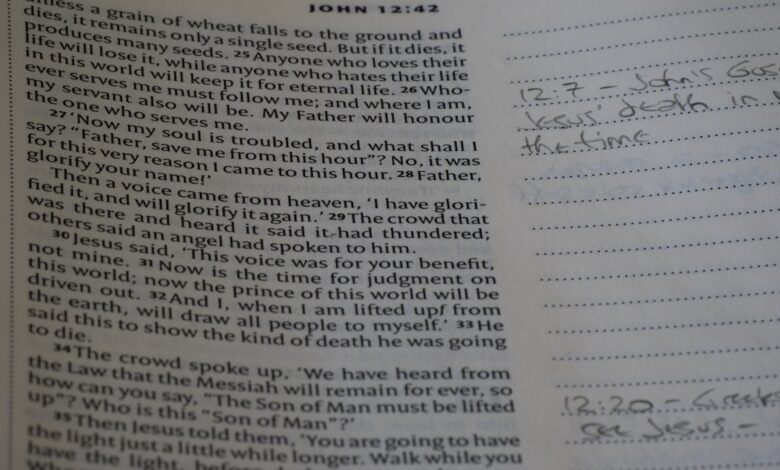 JOHN 12:42
unless a grain of wheat falls to the ground and
dies, it remains only a single seed. But if it dies, it
produces many seeds. 25 Anyone who loves their
life will lose it, while anyone who hates their life
in this world will keep it for eternal life. 26 Who-
ever serves me must follow me; and where I am,
my servant also will be. My Father will honour
the one who serves me.
27 'Now my soul is troubled, and what shall I
say? "Father, save me from this hour"? No, it was
for this very reason I came to this hour. 28 Father,
glorify your name!'
Then a voice came from heaven, 'I have glori-
fied it, and will glorify it again.' 29 The crowd that
was there and heard it said it had thundered;
others said an angel had spoken to him.
30 Jesus said, 'This voice was for your benefit,
not mine. 31 Now is the time for judgment on
this world; now the prince of this world will be
driven out. 32 And I, when I am lifted up f from
the earth, will draw all people to myself.' 33 He
said this to show the kind of death he was going
to die.
34 The crowd spoke up, 'We have heard from
the Law that the Messiah will remain for ever, so
how can you say, "The Son of Man must be lifted
up"? Who is this "Son of Man"?'
35 Then Jesus told them, 'You are going to have
the light just a little while longer. Walk while you
have the light, before
12:7 - John's Gos
Jesus' death in
the time
12:20 - Greeks
see Jesus -